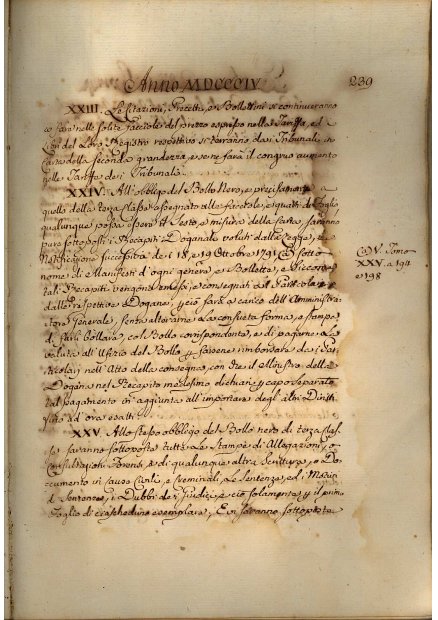 Anno MDCCCIV
239
XXIII. Le Citazioni, Precetti, e Bollettini si continueranno
a fare nelle solite facciole del prezzo espresso nella Tariffa, ed
del Loro Registro respettivo si terranno dai Tribunali in
Carta della seconda grandezza, e se ne farà il congruo aumento
nelle Tariffe dei Tribunali.
XXIV. All'obbligo del Bollo Nero, e precisamente a
quello della terza classe assegnato alle facciole, e quarti di foglio
qualunque possa essere il sesto, e misura della Carta, saranno
pure sottoposti i Recapiti Doganali voluti dalla Legge, e
Notificazione successiva de' 18, e 19 Ottobre 1791 sotto
nome di Manifesti d'ogni genere, e Bollette, e siccome
tali Recapiti vengono emessi, e consegnati ai Particolari
dalle respettive Dogane, ciò farà a carico dell'Amministra-
tore Generale, senza alterarne la consueta forma, e stampa
di farli Bollare col Bollo corrispondente, e di pagarne la
valuta all'Ufizio del Bollo, e farsene rimborsare da i Par-
ticolari nell'Atto della consegna, con che il Ministro della
Dogana nel Recapito medesimo dichiari, e capo separato
tal pagamento in aggiunta all'importare degli altri Diritti
fino ad ora esatti.
XXV. Allo stesso obbligo del Bollo nero di terza clas-
se saranno sottoposte tutte le Stampe di Allegazioni, o
Consultazioni Forensi, e di qualunque altra Scrittura, o Do-
cumento in cause Civili, e Criminali, le Sentenze, ed i Motivi
di Sentenze, i Dubbi de' Giudici, e ciò solamente il primo
foglio di ciascheduno esemplare, E vi saranno sottoposte
Tomo
XXV. a 194
e 198